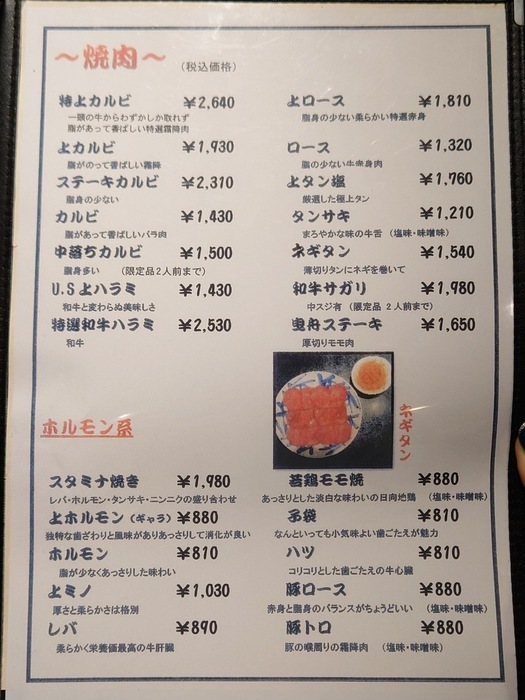 ～焼肉～ (税込価格)
特上カルビ ¥2,640
一頭の牛からわずかしか取れず
脂があって香ばしい特選霜降肉
上カルビ ¥1,930
脂がのって香ばしい霜降
ステーキカルビ ¥2,310
脂身の少ない
カルビ ¥1,430
脂があって香ばしいバラ肉
中落ちカルビ ¥1,500
脂身多い (限定品2人前まで)
U.S上ハラミ ¥1,430
和牛と変わらぬ美味しさ
特選和牛ハラミ ¥2,530
和牛
上ロース ¥1,810
脂身の少ない柔らかい特選赤身
ロース ¥1,320
脂の少ない牛赤身肉
上タン塩 ¥1,760
厳選した極上タン
タンサキ ¥1,210
まろやかな味の牛舌 (塩味・味噌味)
ネギタン ¥1,540
薄切りタンにネギを巻いて
和牛サガリ ¥1,980
中スジ有 (限定品 2人前まで)
曳舟ステーキ ¥1,650
厚切りモモ肉
ネギタン
ホルモン系
スタミナ焼き ¥1,980
レバ・ホルモン・タンサキ・ニンニクの盛り合わせ
上ホルモン(ギャラ) ¥880
独特な歯ざわりと風味がありあっさりして消化が良い
ホルモン ¥810
脂が少なくあっさりした味わい
上ミノ ¥1,030
厚さと柔らかさは格別
レバ ¥890
柔らかく栄養価最高の牛肝臓
若鶏モモ焼 ¥880
あっさりとした淡白な味わいの日向地鶏 (塩味・味噌味)
子袋 ¥810
なんといっても小気味よい歯ごたえが魅力
ハツ ¥810
コリコリとした歯ごたえの牛心臓
豚ロース ¥880
赤身と脂身のバランスがちょうどいい (塩味・味噌味)
豚トロ ¥880
豚の喉周りの霜降肉 (塩味・味噌味)